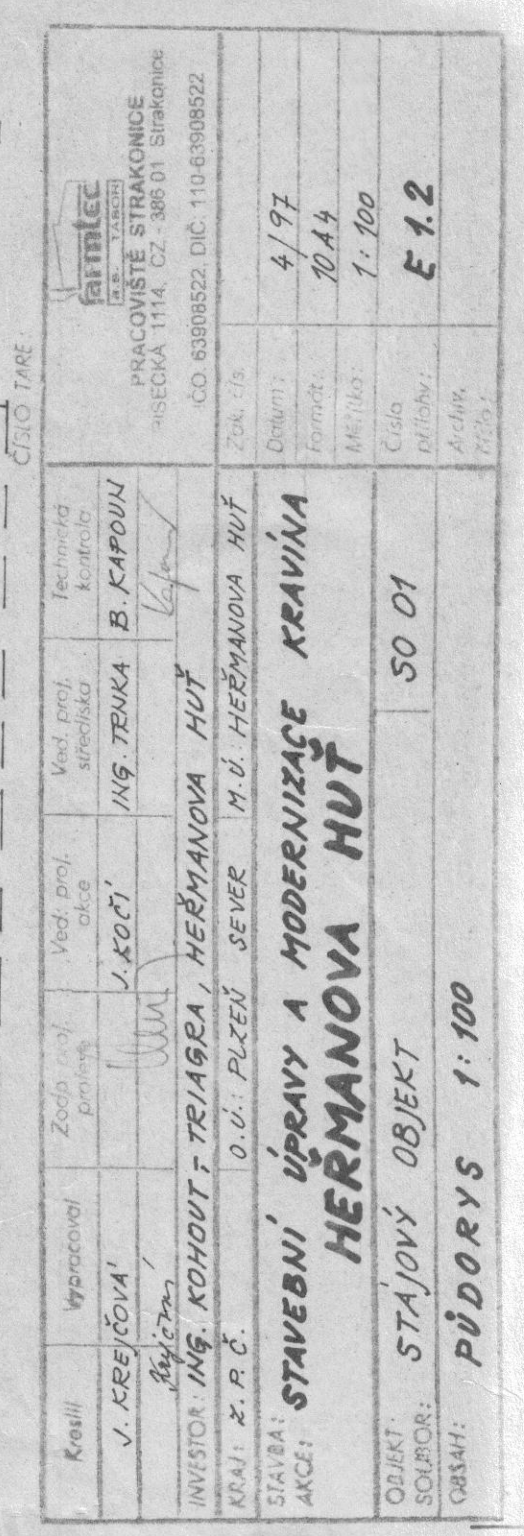 ČÍSLO PARE:
Kreslil Vypracoval Zodp. proj. profese Ved. proj. akce Ved. proj. střediska Technická kontrola
J. KREJČOVÁ J. KOČÍ ING. TRNKA B. KAPOUN
farmtec
a.s. TÁBOR
PRACOVIŠTĚ STRAKONICE
PÍSECKÁ 1114, CZ - 386 01 Strakonice
IČO: 63908522, DIČ: 110-63908522
INVESTOR: ING. KOHOUT - TRIAGRA, HEŘMANOVA HUŤ
KRAJ: Z.P.Č. O.Ú.: PLZEŇ SEVER M.Ú.: HEŘMANOVA HUŤ
Zak. čís.
STAVBA:
AKCE:
STAVEBNÍ ÚPRAVY A MODERNIZACE KRAVÍNA
HEŘMANOVA HUŤ
Datum: 4/97
Formát: 10 A4
Měřítko: 1:100
OBJEKT:
SOUBOR:
STÁJOVÝ OBJEKT SO 01
Číslo
přílohy:
E 1.2
OBSAH: PŮDORYS 1:100
Archiv.